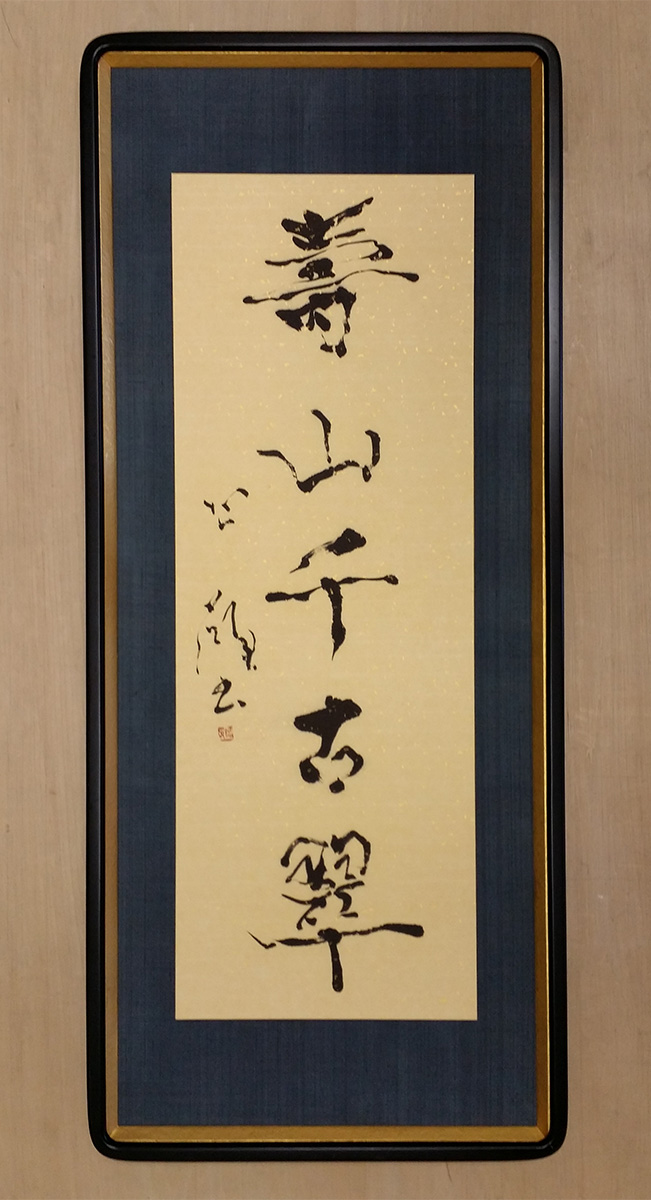 壽山千古翠
書